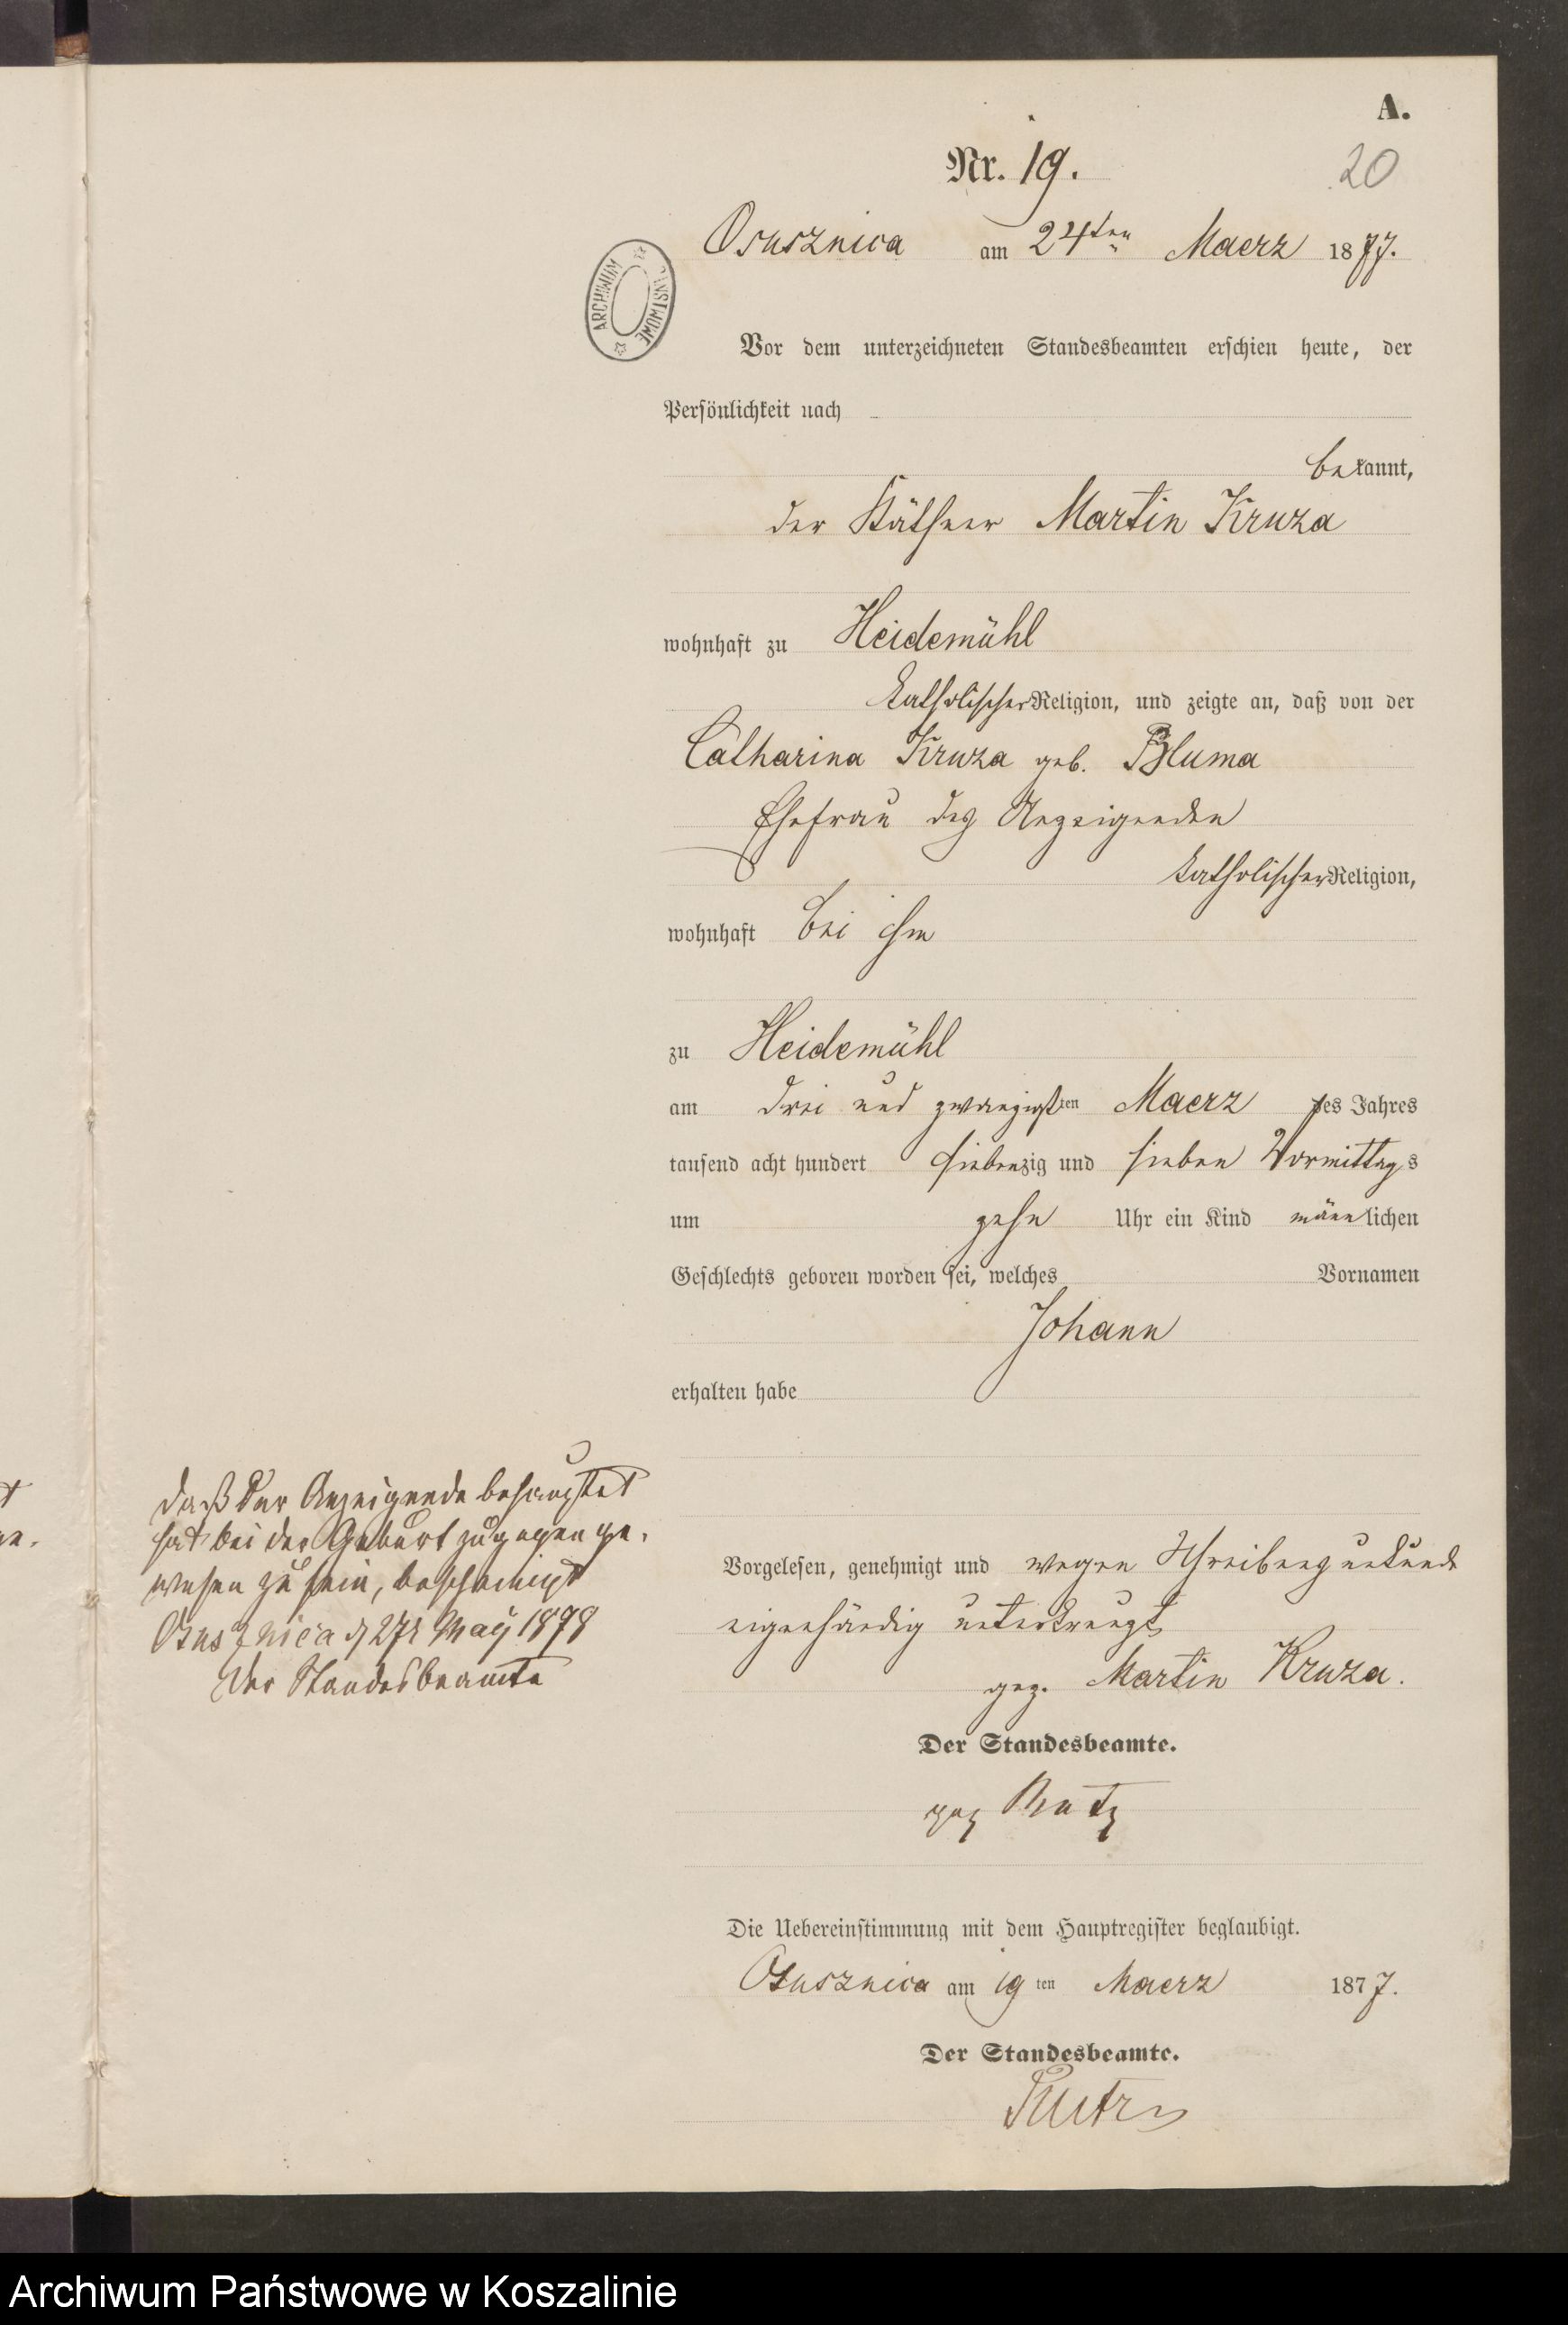 A.
Nr. 19.
20
Osusznica am 24ten Maerz 1877.
ARCHIWUM
Vor dem unterzeichneten Standesbeamten erschien heute, der
Persönlichkeit nach
bekannt,
der Käthner Martin Kruza
wohnhaft zu Heidemühl
katholischer Religion, und zeigte an, daß von der
Catharina Kruza geb. Bluma
Ehefrau des Anzeigenden
katholischer Religion,
wohnhaft bei ihm
zu Heidemühl
am drei und zwanzigsten Maerz des Jahres
tausend acht hundert siebenzig und sieben Vormittags
um zehn Uhr ein Kind männlichen
Geschlechts geboren worden sei, welches Vornamen
Johann
erhalten habe
daß der Anzeigende behauptet
hat bei der Geburt zugegen ge-
wesen zu sein, bescheinigt
Osusznica d 27t May 1878
Der Standesbeamte
Vorgelesen, genehmigt und wegen Schreibensunkunde
eigenhändig unterkreuzt
gez. Martin Kruza.
Der Standesbeamte.
gez
Die Uebereinstimmung mit dem Hauptregister beglaubigt.
Osusznica am 19ten Maerz 1877.
Der Standesbeamte.
Archiwum Państwowe w Koszalinie